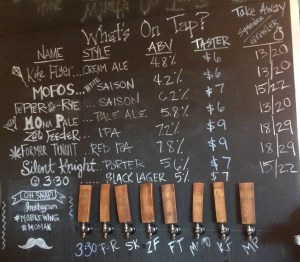 What's On Tap?
Take Away
Squealer
Growler
NAME STYLE ABV TASTER
Kite Flyer... CREAM ALE 4.8% $6 13/20
MOFOS... WHITE SAISON 4.2% $6 13/20
PEPPER-RYE ... SAISON 6.2% $7 15/22
MONA PALE ... PALE ALE 5.8% $6 13/20
Zoo Feeder ... IPA 7.2% $9 18/29
FORMER TENANT.. RED IPA 7.8% $9 18/29
Silent Knight.. PORTER 5.6% $7 15/22
@ 3:30 .... BLACK LAGER 5% $7
OH SNAP!
Instagram
#MOBREWING
#MOMAN
3:30 P-R SK ZF FT MOFO KF MP